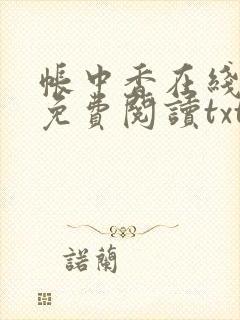 帳中香在綫
免費閱讀txt
諾蘭